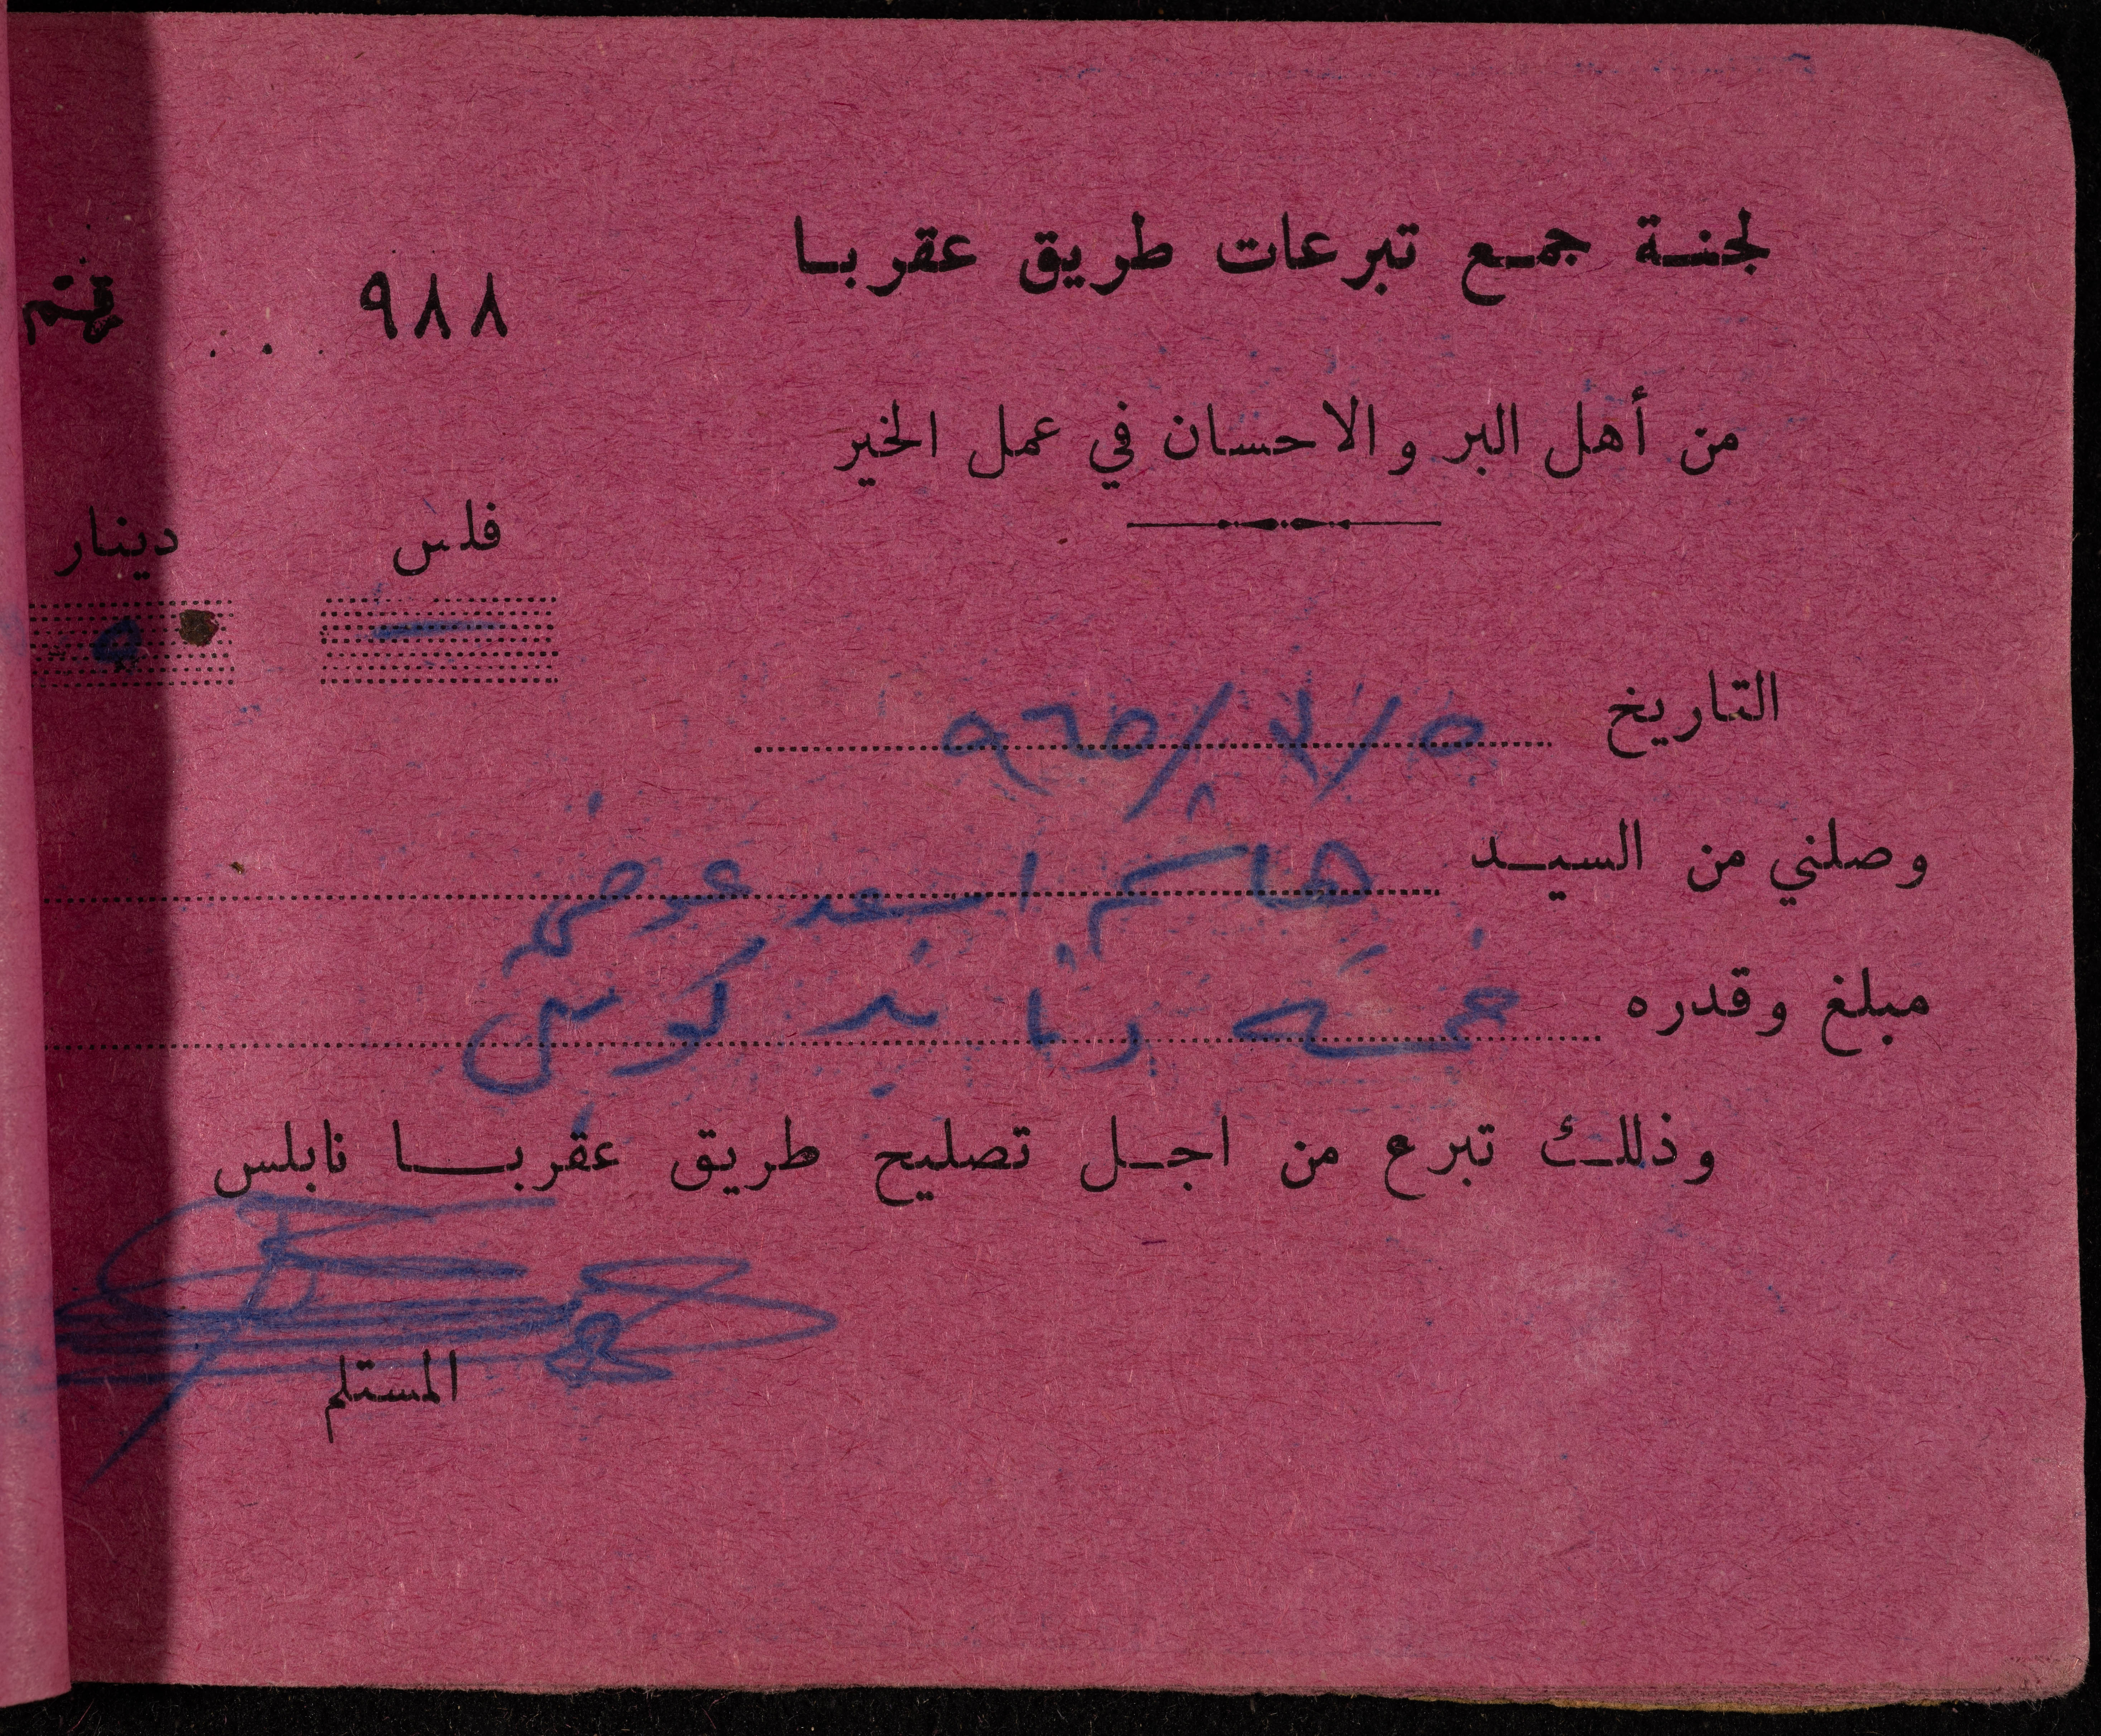 لجنة جمع تبرعات طريق عقربا
٩٨٨
من أهل البر والاحسان في عمل الخير
فلس دينار
— ٥
التاريخ ٥ / / ٩٦٥
وصلني من السيد هاشم اسعد عوض
مبلغ وقدره خمسة دنانير
وذلك تبرع من اجل تصليح طريق عقربا نابلس
المستلم